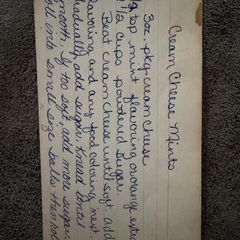 Cream Cheese Mints
3oz. pkg. cream cheese
tsp mint flavoring or orange extra
½ cups powdered sugar.
Beat cream cheese until soft. add
flavoring and any food coloring next
gradually add sugar. Knead until
smooth. If too soft, add more sugar
roll into small size balls